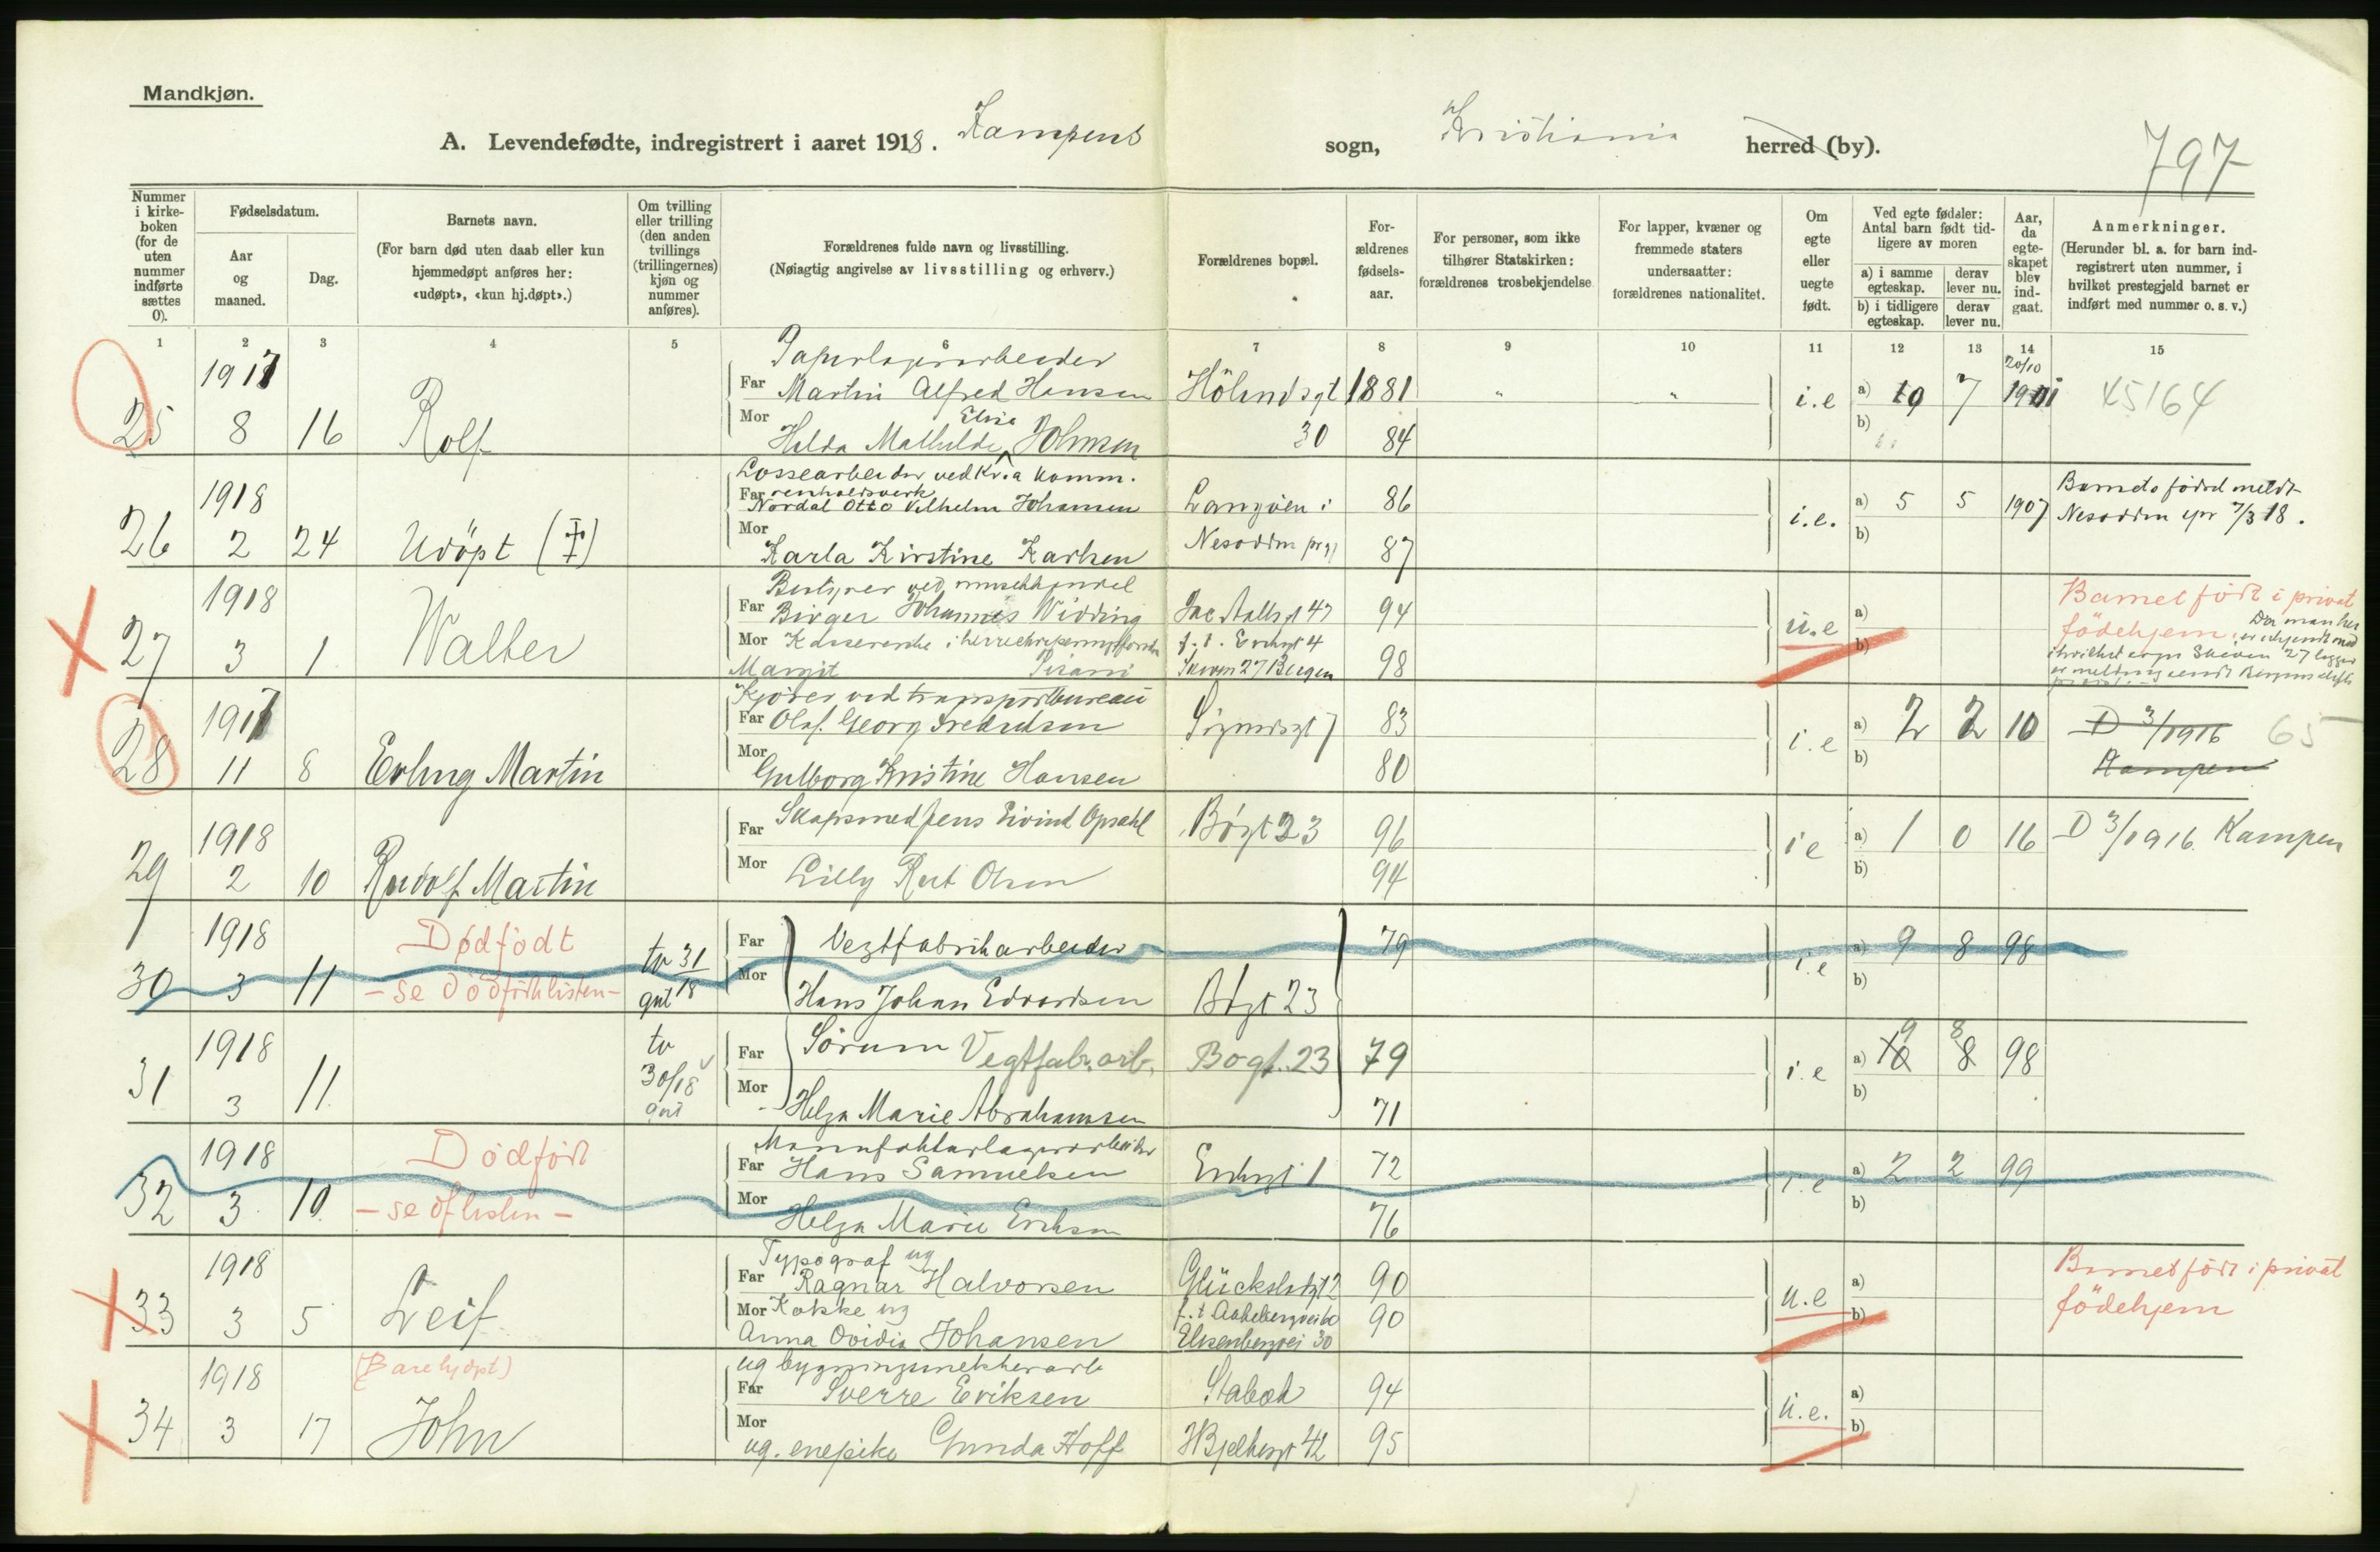 Mandkjøn.
A. Levendefødte, indregistrert i aaret 1918. Kampens sogn, Kristiania herred (by).
797
Nummer i kirkeboken (for de uten nummer indførte sættes 0).
Fødselsdatum.
Aar og maaned.
Dag.
Barnets navn.
(For barn død uten daab eller kun hjemmedøpt anføres her: «udøpt», «kun hj.døpt».)
Om tvilling eller trilling (den anden tvillings (trillingernes) kjøn og nummer anføres).
Forældrenes fulde navn og livsstilling.
(Nøiagtig angivelse av livsstilling og erhverv.)
Forældrenes bopæl.
Forældrenes fødselsaar.
For personer, som ikke tilhører Statskirken: forældrenes trosbekjendelse.
For lapper, kvæner og fremmede staters undersaatter: forældrenes nationalitet.
Om egte eller uegte født.
Ved egte fødsler: Antal barn født tidligere av moren
a) i samme egteskap. derav lever nu.
b) i tidligere egteskap. derav lever nu.
Aar, da egteskapet blev indgaat.
Anmerkninger.
(Herunder bl. a. for barn indregistrert uten nummer, i hvilket prestegjeld barnet er indført med nummer o. s. v.)
1 2 3 4 5 6 7 8 9 10 11 12 13 14 15
25 1917 8 16 Rolf
Papirlagerarbeider
Far Martin Alfred Hansen
Mor Elise
Helda Mathilde Johnsen
Hölandsgt 30
1881
84
" "
i.e a) 9 7 20/10 1901 45164
b)
26 1918 2 24 Udöpt (‡)
Lossearbeider ved Kr.a Komm. renholdsverk
Far Nordal Otto Vilhelm Johansen
Mor Karla Kirstine Karlsen
Langöen i
Nesodden prgj
86
87
i.e. a) 5 5 1907
b)
Barnets fødsel meldt Nesodden spr 7/3 18.
27 1918 3 1 Walter
Bestyrer ved musikhandel
Far Birger Johannes Widding
Mor Kassererske i herreekviperingsforretn
Margit Pisani
Jac Aallsgt 47
f.t. Erichsgt 4
Skiven 27 Bergen
94
98
u.e a)
b)
Barnet född i privat födehjem.
28 1917 11 8 Erling Martin
Kjører ved transportbureau
Far Olaf Georg Fredriksen
Mor Gulborg Kristine Hansen
Sigurdsgt 7
83
80
i.e a) 2 2 10
b)
D 3/1916 Kampen
65
29 1918 2 10 Rudolf Martin
Far Skapsmed Jens Eivind Opsahl
Mor Lilly Rut Olsen
Bögt 23
96
94
i e a) 1 0 16
b)
D 3/1916 Kampen
30 1918 3 11
Dödfödt
- se dödfödtlisten -
tv 31/18 gut
Far Vegtfabrikarbeider
Mor Hans Johan Edvardsen
Bögt 23
79
i.e a) 9 8 98
b)
31 1918 3 11
tv 30/18 gut
Far Sörum Vegtfabr.arb.
Mor Helga Marie Abrahamsen
Bogt. 23
79
71
i.e a) 10 9 8 8 98
b)
32 1918 3 10
Dödfödt
- se df listen -
Manufakturlagerarbeider
Far Hans Samuelsen
Mor Helga Marie Eriksen
Erichsgt 1
72
76
i.e a) 2 2 99
b)
33 1918 3 5 Leif
Typograf ug
Far Ragnar Halvorsen
Mor Kokke ug
Anna Ovidia Johansen
Glückstadsgt 2
f.t Aakebergvei 60
Elisenbergvei 30
90
90
u.e a)
b)
Barnet född i privat födehjem
34 1918 3 17
(Bare hjdøpt)
John
ug bygningssnekkerarb
Far Sverre Eriksen
Mor ug. enepike Gunda Hoff
Stabæk
HBjelkesgt 42
94
95
u.e. a)
b)